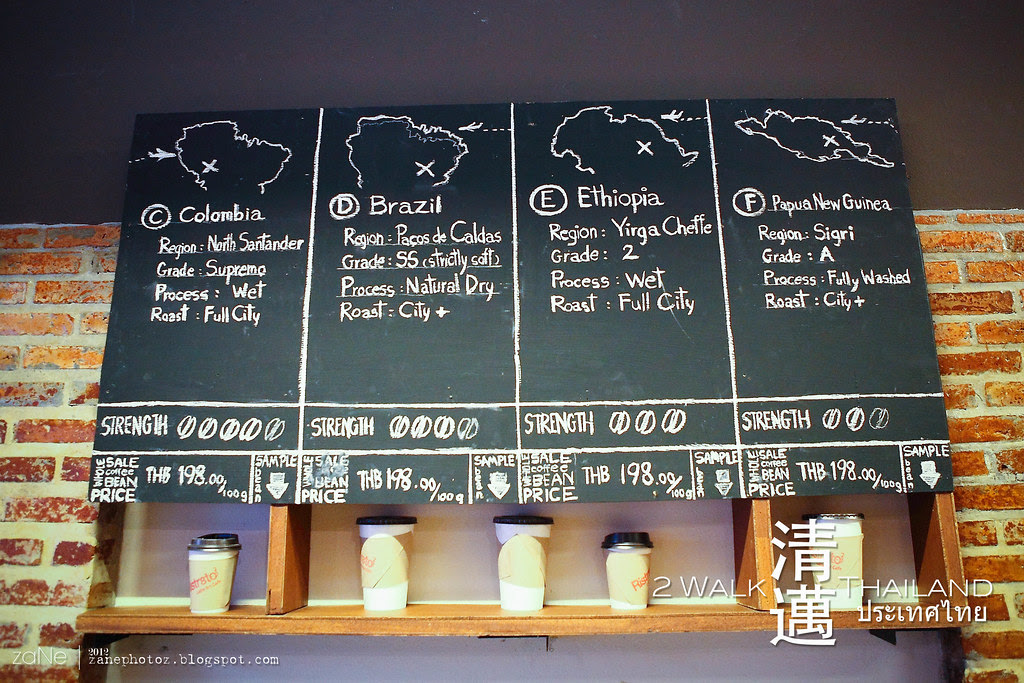 C Colombia
Region: North Santander
Grade: Supremo
Process: Wet
Roast: Full City
STRENGTH
WHOLE SALE coffee BEAN PRICE
THB 198.00/100g
SAMPLE
D Brazil
Region: Paços de Caldas
Grade: SS (strictly soft)
Process: Natural Dry
Roast: City +
STRENGTH
WHOLE SALE coffee BEAN PRICE
THB 198.00/100g
SAMPLE
E Ethiopia
Region: Yirga Cheffe
Grade: 2
Process: Wet
Roast: Full City
STRENGTH
WHOLE SALE coffee BEAN PRICE
THB 198.00/100g
SAMPLE
F Papua New Guinea
Region: Sigri
Grade: A
Process: Fully Washed
Roast: City+
STRENGTH
WHOLE SALE coffee BEAN PRICE
THB 198.00/100g
SAMPLE
清邁
2 WALK THAILAND
ประเทศไทย
zaNe
2012
zanephotoz.blogspot.com